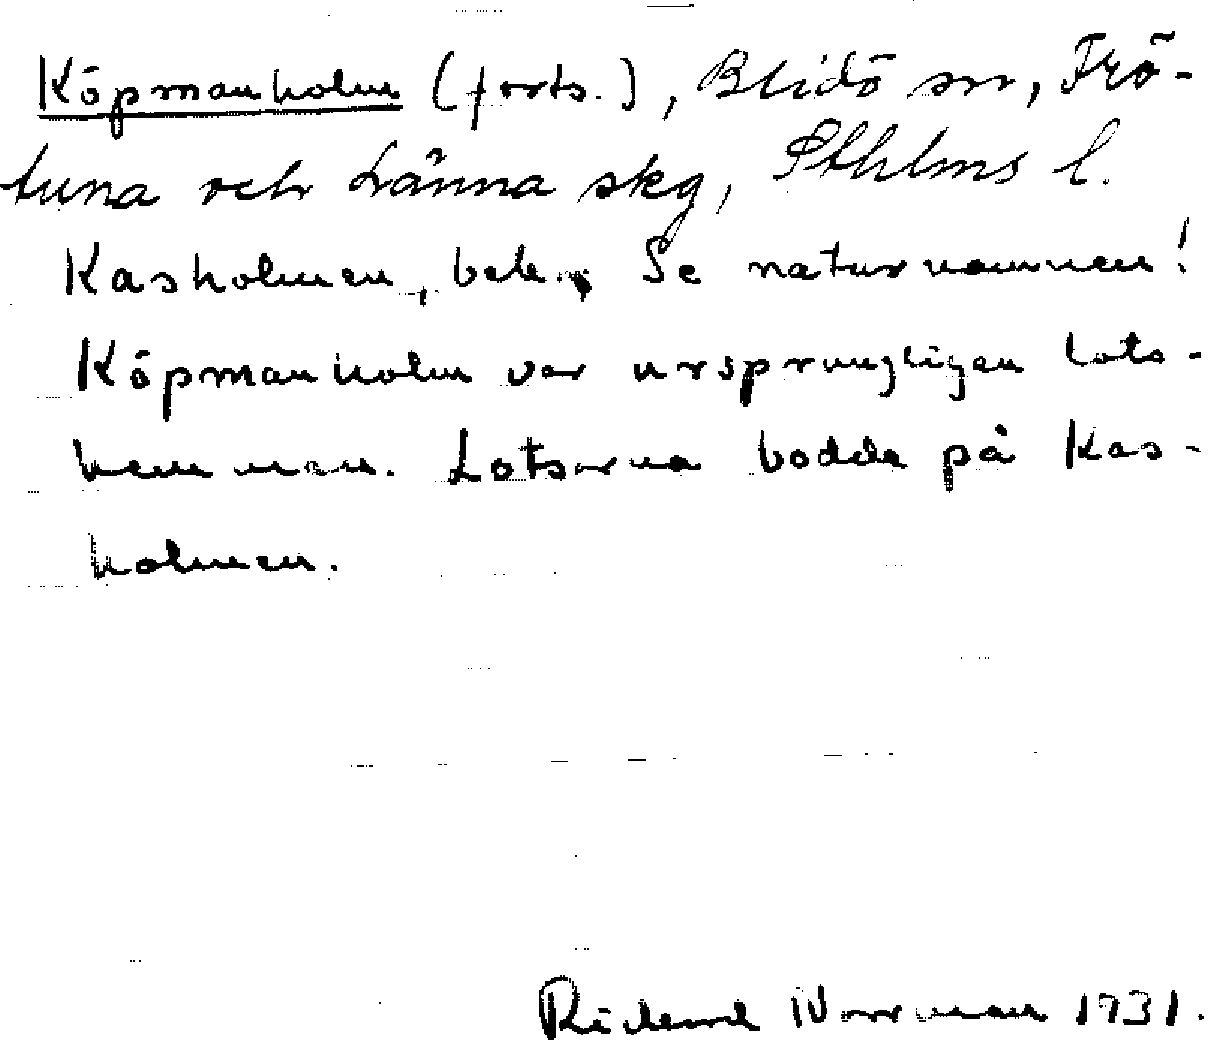 Köpmanholm (forts.), Blidö sn, Frö-
tuna och Länna skg, Sthlms l.
Kasholmen, beb., Se naturnamnen!
Köpmanholm var ursprungligen lots-
hemman. Lotsarna bodde på Kas-
holmen.
Rickard Norrman 1931.